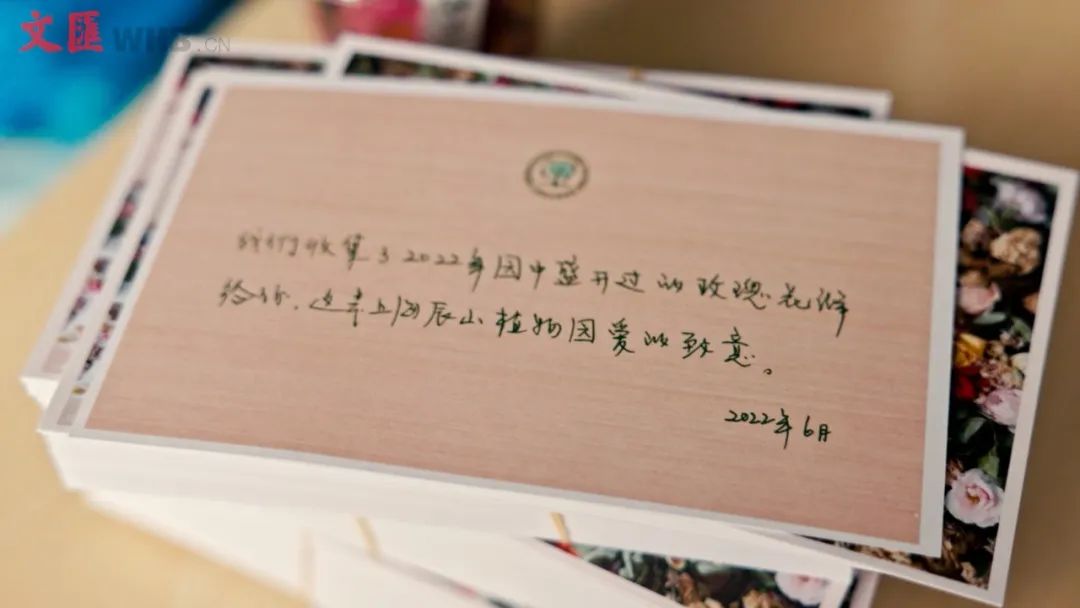 文匯WHB.CN
我们收集了2022年园中盛开过的玫瑰花瓣
给你,这来上海辰山植物园爱的致意。
2022年6月